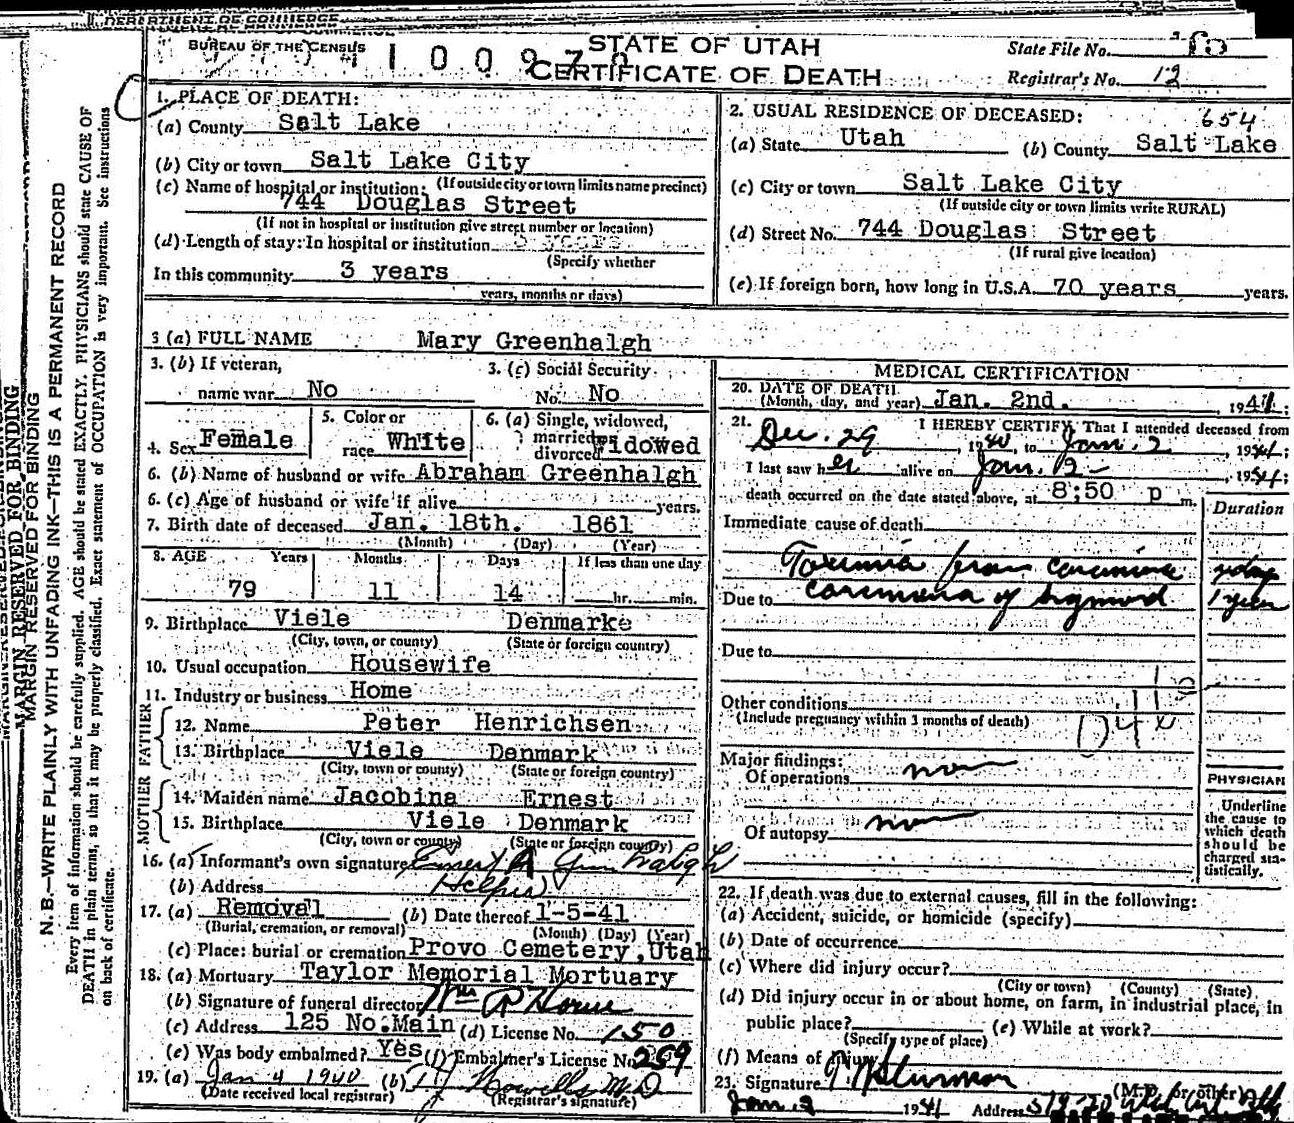 DEPARTMENT OF COMMERCE
BUREAU OF THE CENSUS
STATE OF UTAH
CERTIFICATE OF DEATH
State File No.
Registrar's No. 12
1. PLACE OF DEATH:
(a) County Salt Lake
(b) City or town Salt Lake City
(If outside city or town limits name precinct)
(c) Name of hospital or institution:
744 Douglas Street
(If not in hospital or institution give street number or location)
(d) Length of stay: In hospital or institution
(Specify whether
In this community 3 years
years, months or days)
2. USUAL RESIDENCE OF DECEASED: 654
(a) State Utah (b) County Salt Lake
(c) City or town Salt Lake City
(If outside city or town limits write RURAL)
(d) Street No. 744 Douglas Street
(If rural give location)
(e) If foreign born, how long in U.S.A. 70 years years.
3 (a) FULL NAME Mary Greenhalgh
3. (b) If veteran, name war No
3. (c) Social Security No. No
4. Sex Female
5. Color or race White
6. (a) Single, widowed, married, divorced Widowed
6. (b) Name of husband or wife Abraham Greenhalgh
6. (c) Age of husband or wife if alive years.
7. Birth date of deceased Jan. 18th. 1861
(Month) (Day) (Year)
8. AGE Years Months Days If less than one day
79 11 14 hr. min.
9. Birthplace Viele Denmarke
(City, town, or county) (State or foreign country)
10. Usual occupation Housewife
11. Industry or business Home
FATHER
12. Name Peter Henrichsen
13. Birthplace Viele Denmark
(City, town or county) (State or foreign country)
MOTHER
14. Maiden name Jacobina Ernest
15. Birthplace Viele Denmark
(City, town or county) (State or foreign country)
16. (a) Informant's own signature Ernest A Greenhalgh
(b) Address Helper
17. (a) Removal (b) Date thereof 1-5-41
(Burial, cremation, or removal) (Month) (Day) (Year)
(c) Place: burial or cremation Provo Cemetery, Utah
18. (a) Mortuary Taylor Memorial Mortuary
(b) Signature of funeral director Wm R Howe
(c) Address 125 No. Main (d) License No. 150
(e) Was body embalmed? Yes (f) Embalmer's License No. 259
19. (a) Jan 4 1940 (b) Howells M.D
(Date received local registrar) (Registrar's signature)
MEDICAL CERTIFICATION
20. DATE OF DEATH
(Month, day, and year) Jan. 2nd. , 1941;
21. I HEREBY CERTIFY, That I attended deceased from
Dec. 29, 1940, to Jan. 2, 1941;
I last saw her alive on Jan. 2, 1941;
death occurred on the date stated above, at 8:50 p m.
Duration
Immediate cause of death
Toxemia from carcinoma
Due to carcinoma of sigmoid 1 year
Due to
Other conditions
(Include pregnancy within 3 months of death)
Major findings:
Of operations none
Of autopsy none
PHYSICIAN
Underline the cause to which death should be charged statistically.
22. If death was due to external causes, fill in the following:
(a) Accident, suicide, or homicide (specify)
(b) Date of occurrence
(c) Where did injury occur?
(City or town) (County) (State)
(d) Did injury occur in or about home, on farm, in industrial place, in
public place? (e) While at work?
(Specify type of place)
(f) Means of injury
23. Signature
(M.D. or other)
Jan. 1941 Address
MARGIN RESERVED FOR BINDING
MARGIN RESERVED FOR BINDING
N. B.—WRITE PLAINLY WITH UNFADING INK—THIS IS A PERMANENT RECORD
Every item of information should be carefully supplied. AGE should be stated EXACTLY. PHYSICIANS should state CAUSE OF
DEATH in plain terms, so that it may be properly classified. Exact statement of OCCUPATION is very important. See instructions
on back of certificate.